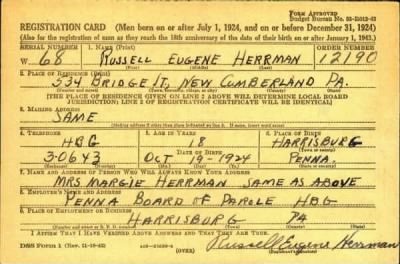 FORM APPROVED
REGISTRATION CARD (Men born on or after July 1, 1924, and on or before December 31, 1924)
(Also for the registration of men as they reach the 18th anniversary of the date of their birth on or after January 1, 1943.)
SERIAL NUMBER 1. NAME (Print) ORDER NUMBER
W 68 RUSSELL EUGENE HERRMAN 12190
2. PLACE OF RESIDENCE (Print)
534 BRIDGE ST, NEW CUMBERLAND PA.
[THE PLACE OF RESIDENCE GIVEN ON LINE 2 ABOVE WILL DETERMINE LOCAL BOARD
JURISDICTION; LINE 2 OF REGISTRATION CERTIFICATE WILL BE IDENTICAL]
3. MAILING ADDRESS
SAME
[Mailing address if other than place indicated on line 2. If same, insert word same]
4. TELEPHONE 5. AGE IN YEARS 6. PLACE OF BIRTH
HBG 18 HARRISBURG
DATE OF BIRTH
3-0643 OCT 19-1924 PENNA.
7. NAME AND ADDRESS OF PERSON WHO WILL ALWAYS KNOW YOUR ADDRESS
MRS MARGIE HERRMAN SAME AS ABOVE
8. EMPLOYER'S NAME AND ADDRESS
PENNA BOARD OF PAROLE HBG
9. PLACE OF EMPLOYMENT OR BUSINESS
HARRISBURG PA
I AFFIRM THAT I HAVE VERIFIED ABOVE ANSWERS AND THAT THEY ARE TRUE.
DSS Form 1 (OVER) Russell Eugene Herrman